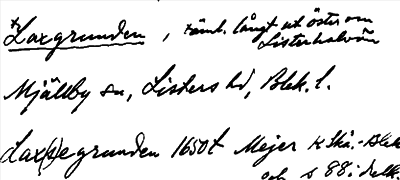 *Laxgrunden, täml. långt ut öster om
Listerhalvön
Mjällby sn, Listers hd, Blek. l.
Lax(s)egrunden 1650t Mejer K Skå.-Blek
och s 88 i